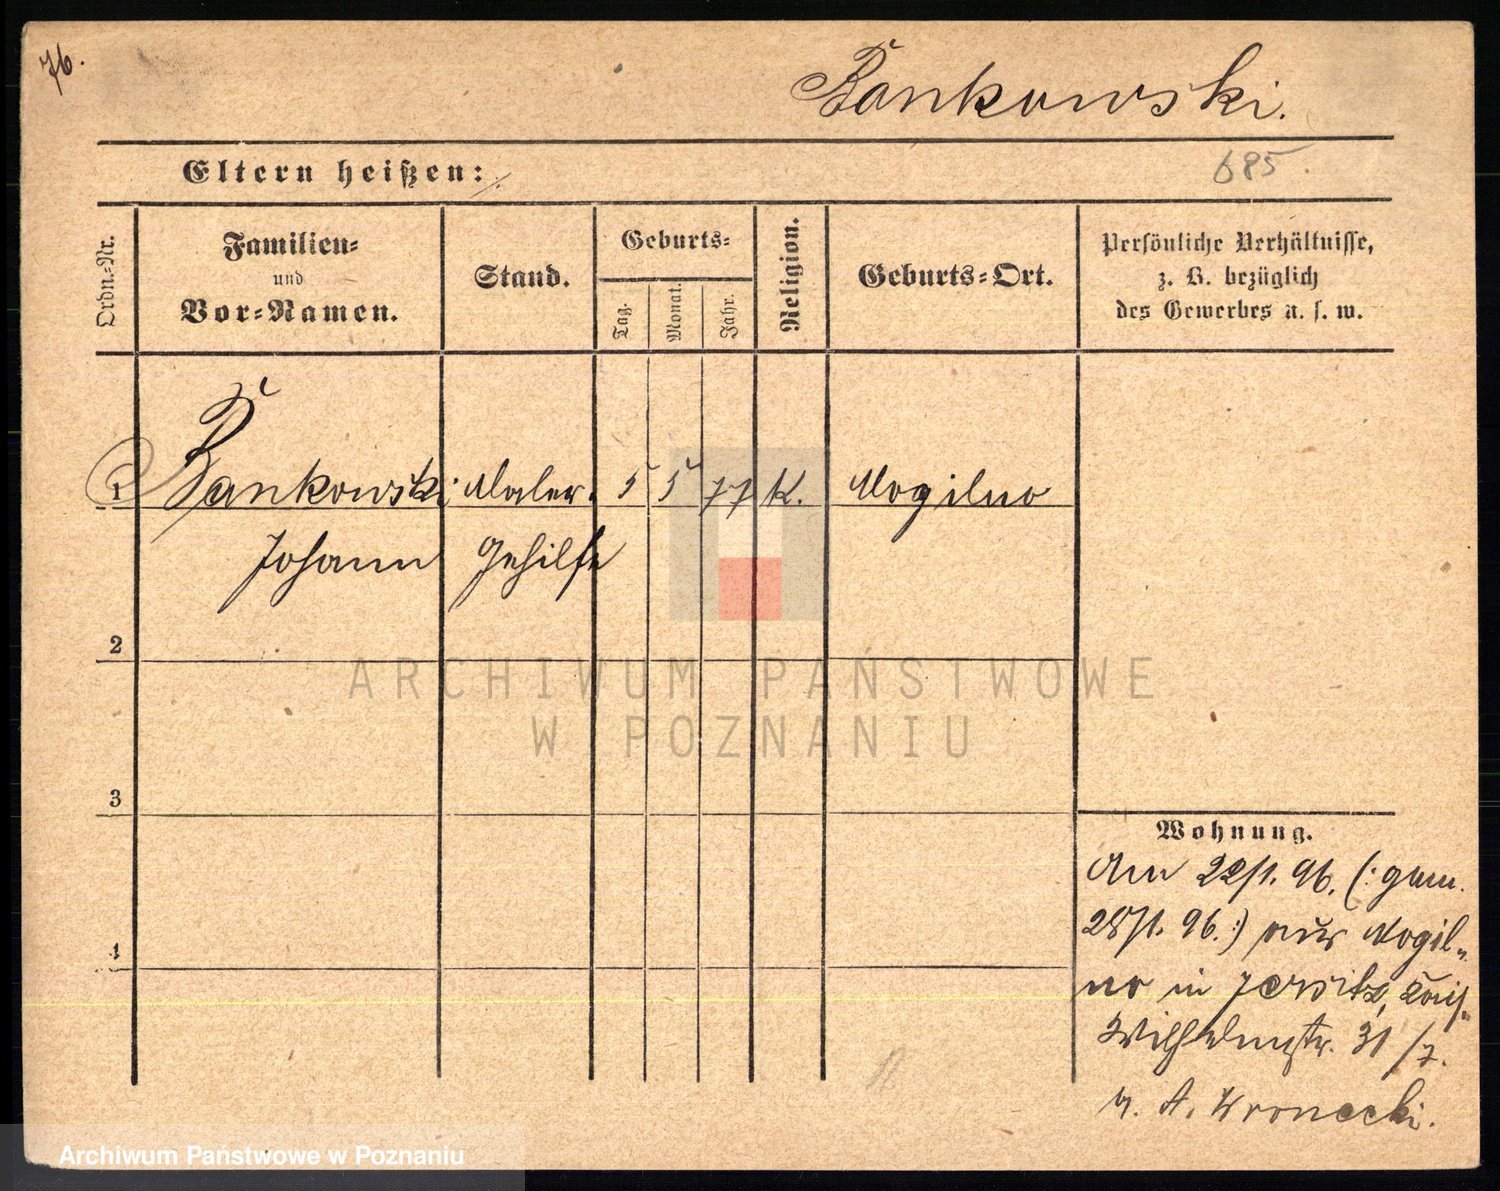 76.
Bankowski.
Eltern heißen:
685
Ordn.-Nr.
Familien-
und
Vor-Namen.
Stand.
Geburts-
Tag.
Monat.
Jahr.
Religion.
Geburts-Ort.
Persönliche Verhältnisse,
z. B. bezüglich
des Gewerbes u. s. w.
1 Bankowski Maler- 5 5 77 K. Mogilno
Johann Gehilfe
2
ARCHIWUM PAŃSTWOWE
W POZNANIU
3
Wohnung.
Am 22/1. 96. (: gem.
28/1. 96. :) aus Mogil-
4
no in Jersitz,
Wilhelmstr. 31
A. Wronecki.
Archiwum Państwowe w Poznaniu